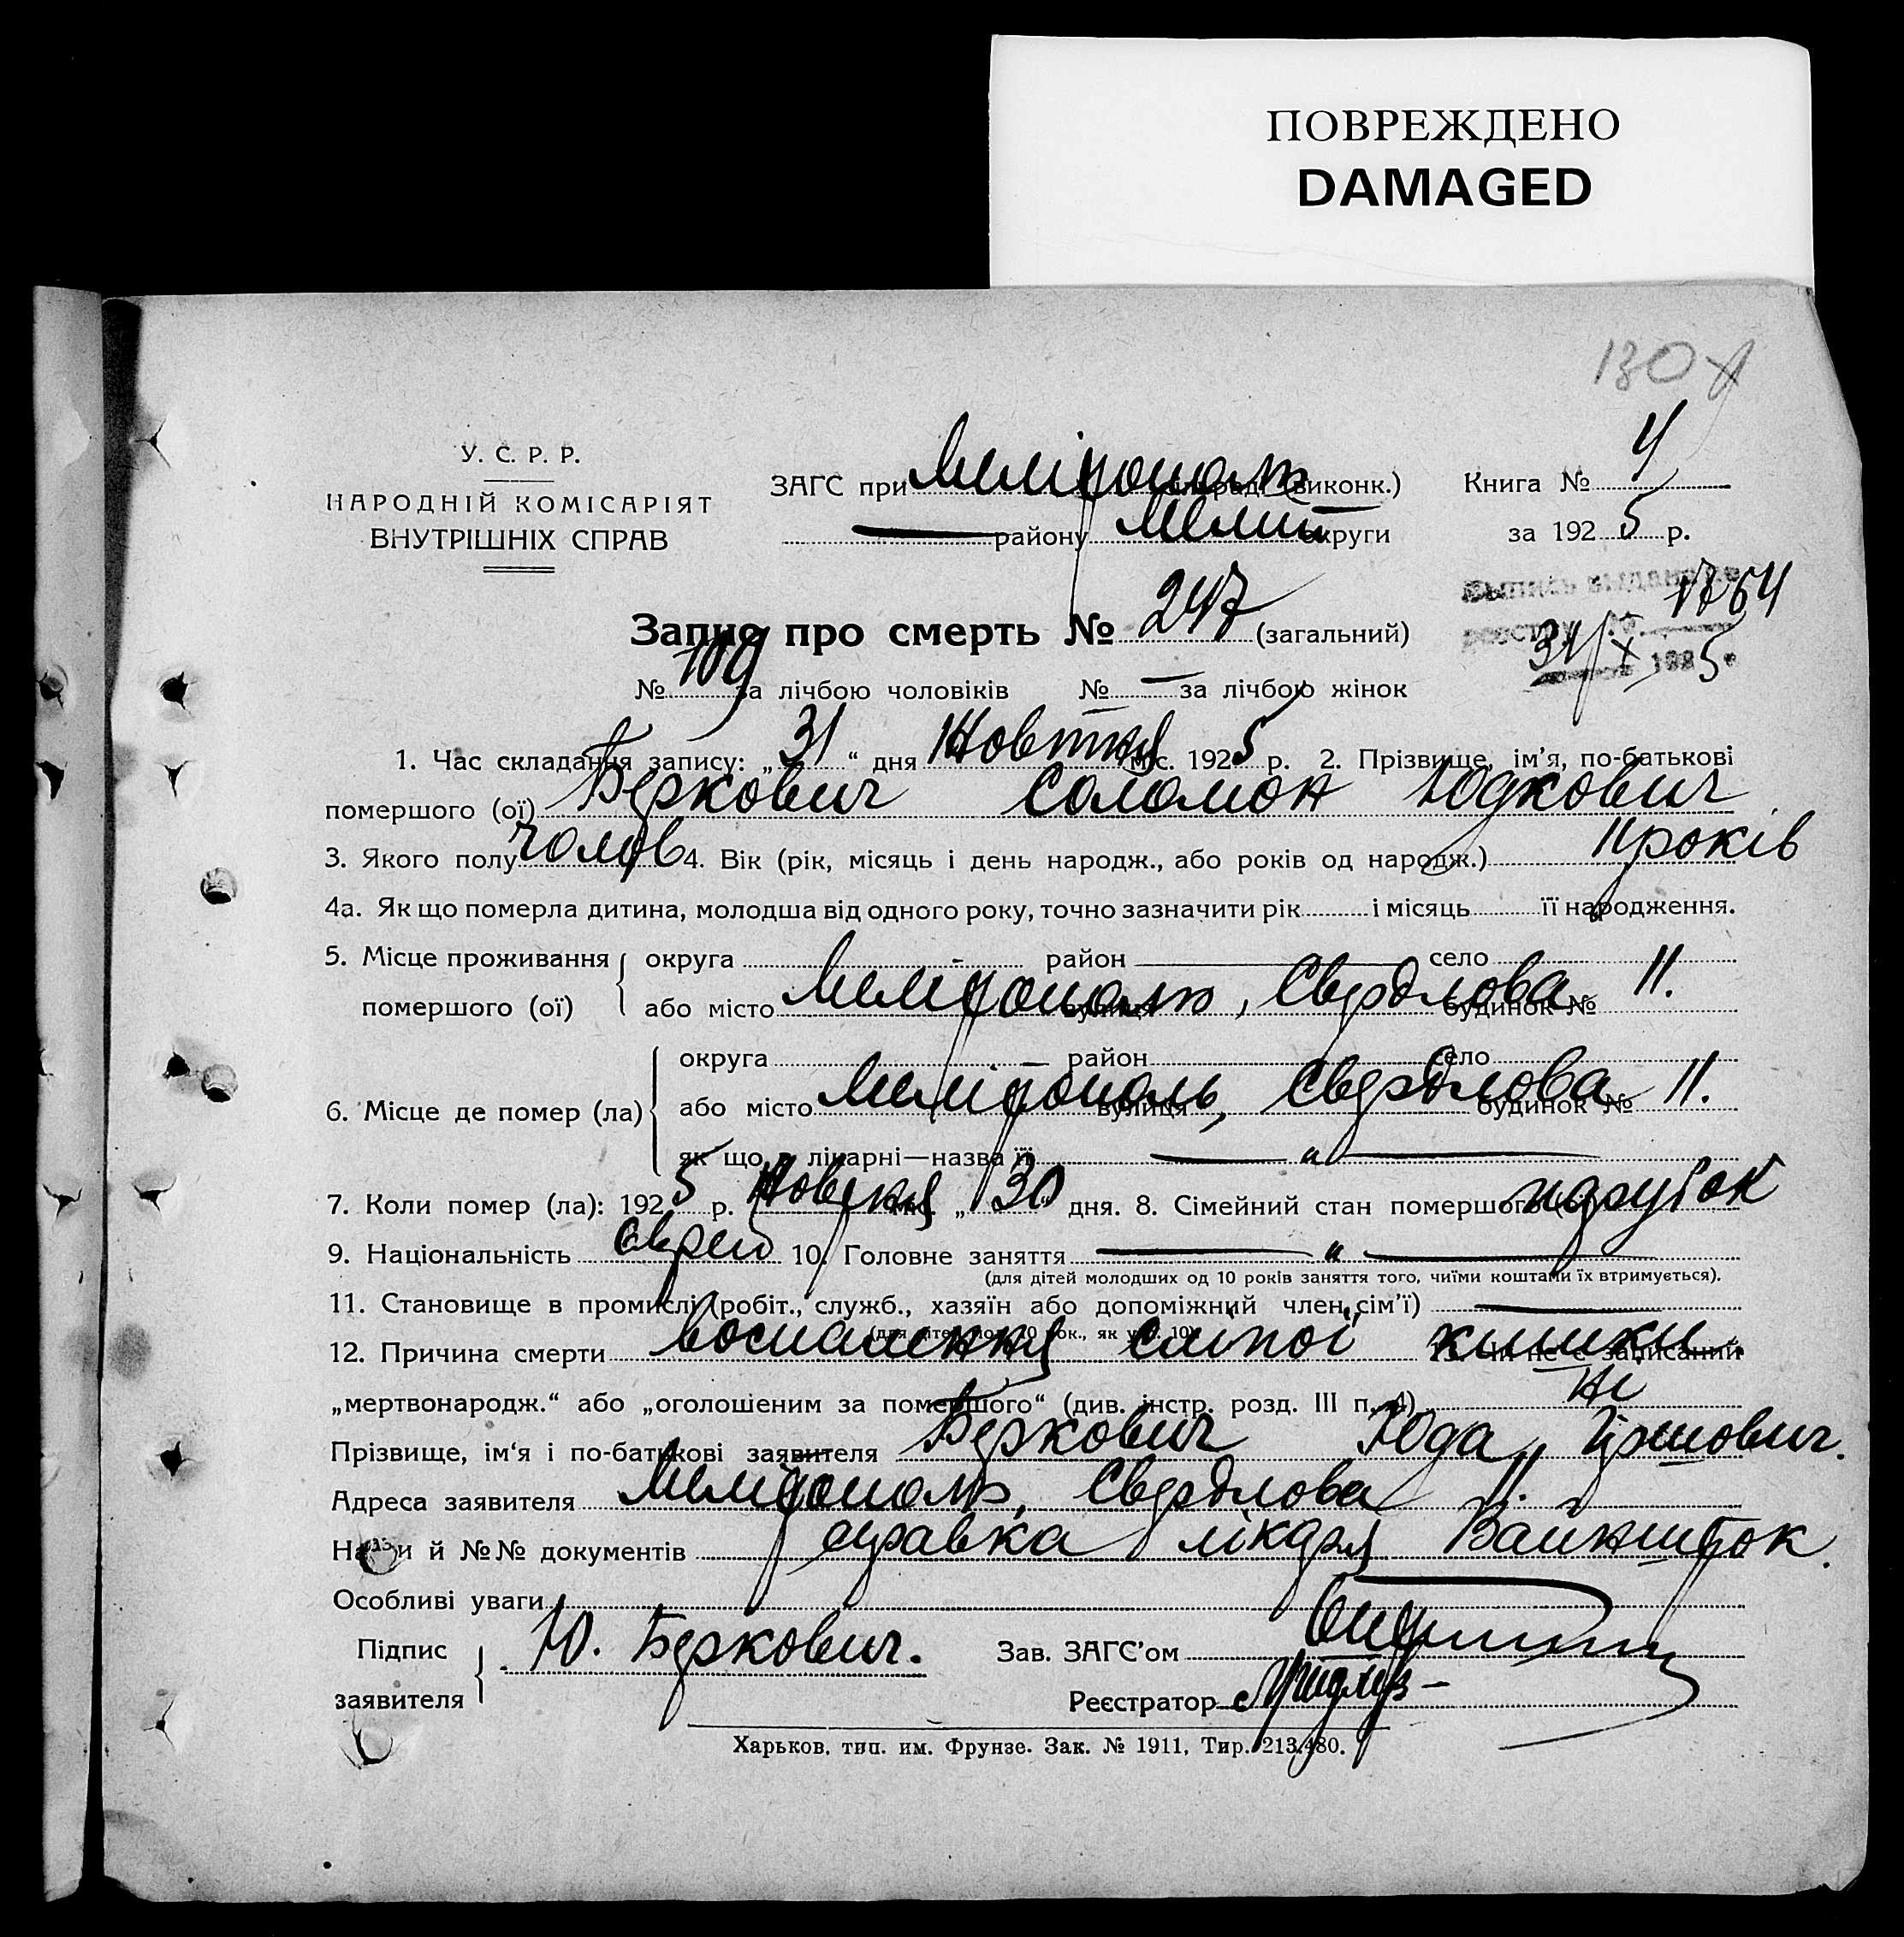 ПОВРЕЖДЕНО
DAMAGED
130
У. С. Р. Р.
НАРОДНІЙ КОМІСАРІЯТ
ВНУТРІШНІХ СПРАВ
ЗАГС при Мелітополь (виконк.)
— району Меліт округи
Книга № 4
за 1925 р.
1764
31/X 1925
Запис про смерть № 247 (загальний)
№ 109 за лічбою чоловіків № — за лічбою жінок
1. Час складання запису: „31“ дня Жовтня міс. 1925 р. 2. Прізвище, ім'я, по-батькові
помершого (ої) Беркович Соломон Юдкович
3. Якого полу чолов 4. Вік (рік, місяць і день народж., або років од народж.) 11 років
4а. Як що померла дитина, молодша від одного року, точно зазначити рік і місяць її народження.
5. Місце проживання помершого (ої) округа - район — село
або місто Мелітополь, вулиця Свердлова будинок № 11.
6. Місце де помер (ла) округа — район село
або місто Мелітополь, вулиця Свердлова будинок № 11.
як що в лікарні—назва її — „ —
7. Коли помер (ла): 1925 р. Жовтня міс. „30 дня. 8. Сімейний стан помершого парубок
9. Національність єврей 10. Головне заняття — „ —
(для дітей молодших од 10 років заняття того, чиїми коштами їх втримується).
11. Становище в промислі (робіт., служб., хазяїн або допоміжний член сім'ї) —
(для дітей мол. 10 рок., як у п. 10)
12. Причина смерти воспалення сліпої кишки. 13. Чи не є записаний
„мертвонародж.“ або „оголошеним за помершого“ (див. інстр. розд. III п. 4) ні
Прізвище, ім'я і по-батькові заявителя Беркович Юда Гршович.
Адреса заявителя Мелітополь, Свердлова 11.
Назви й №№ документів справка лікаря Вайншток.
Особливі уваги
Підпис заявителя Ю. Беркович.
Зав. ЗАГС'ом
Реєстратор
Харьков, тип. им. Фрунзе. Зак. № 1911, Тир. 213.480.